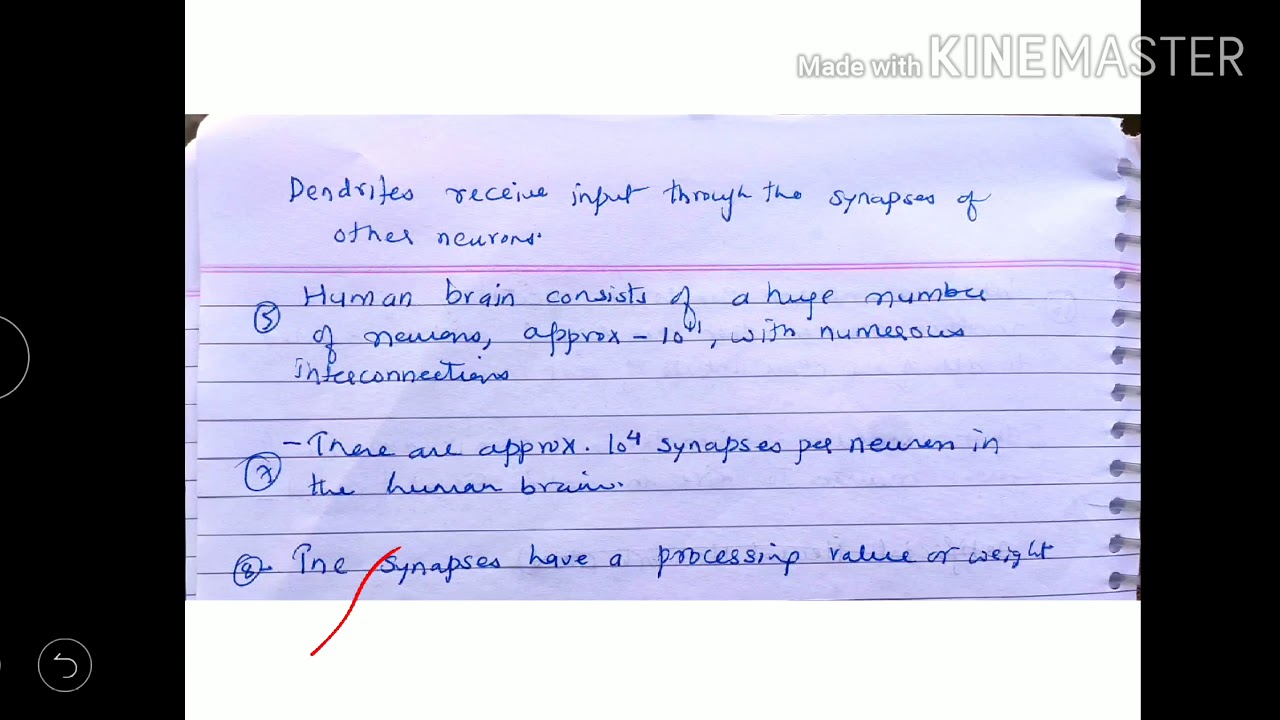 Made with KINEMASTER
Dendrites receive input through the synapses of
other neurons.
5 Human brain consists of a huge number
of neurons, approx - 10¹¹, with numerous
interconnections
- There are approx. 10⁴ synapses per neuron in
7 the human brain.
8. The synapses have a processing value or weight